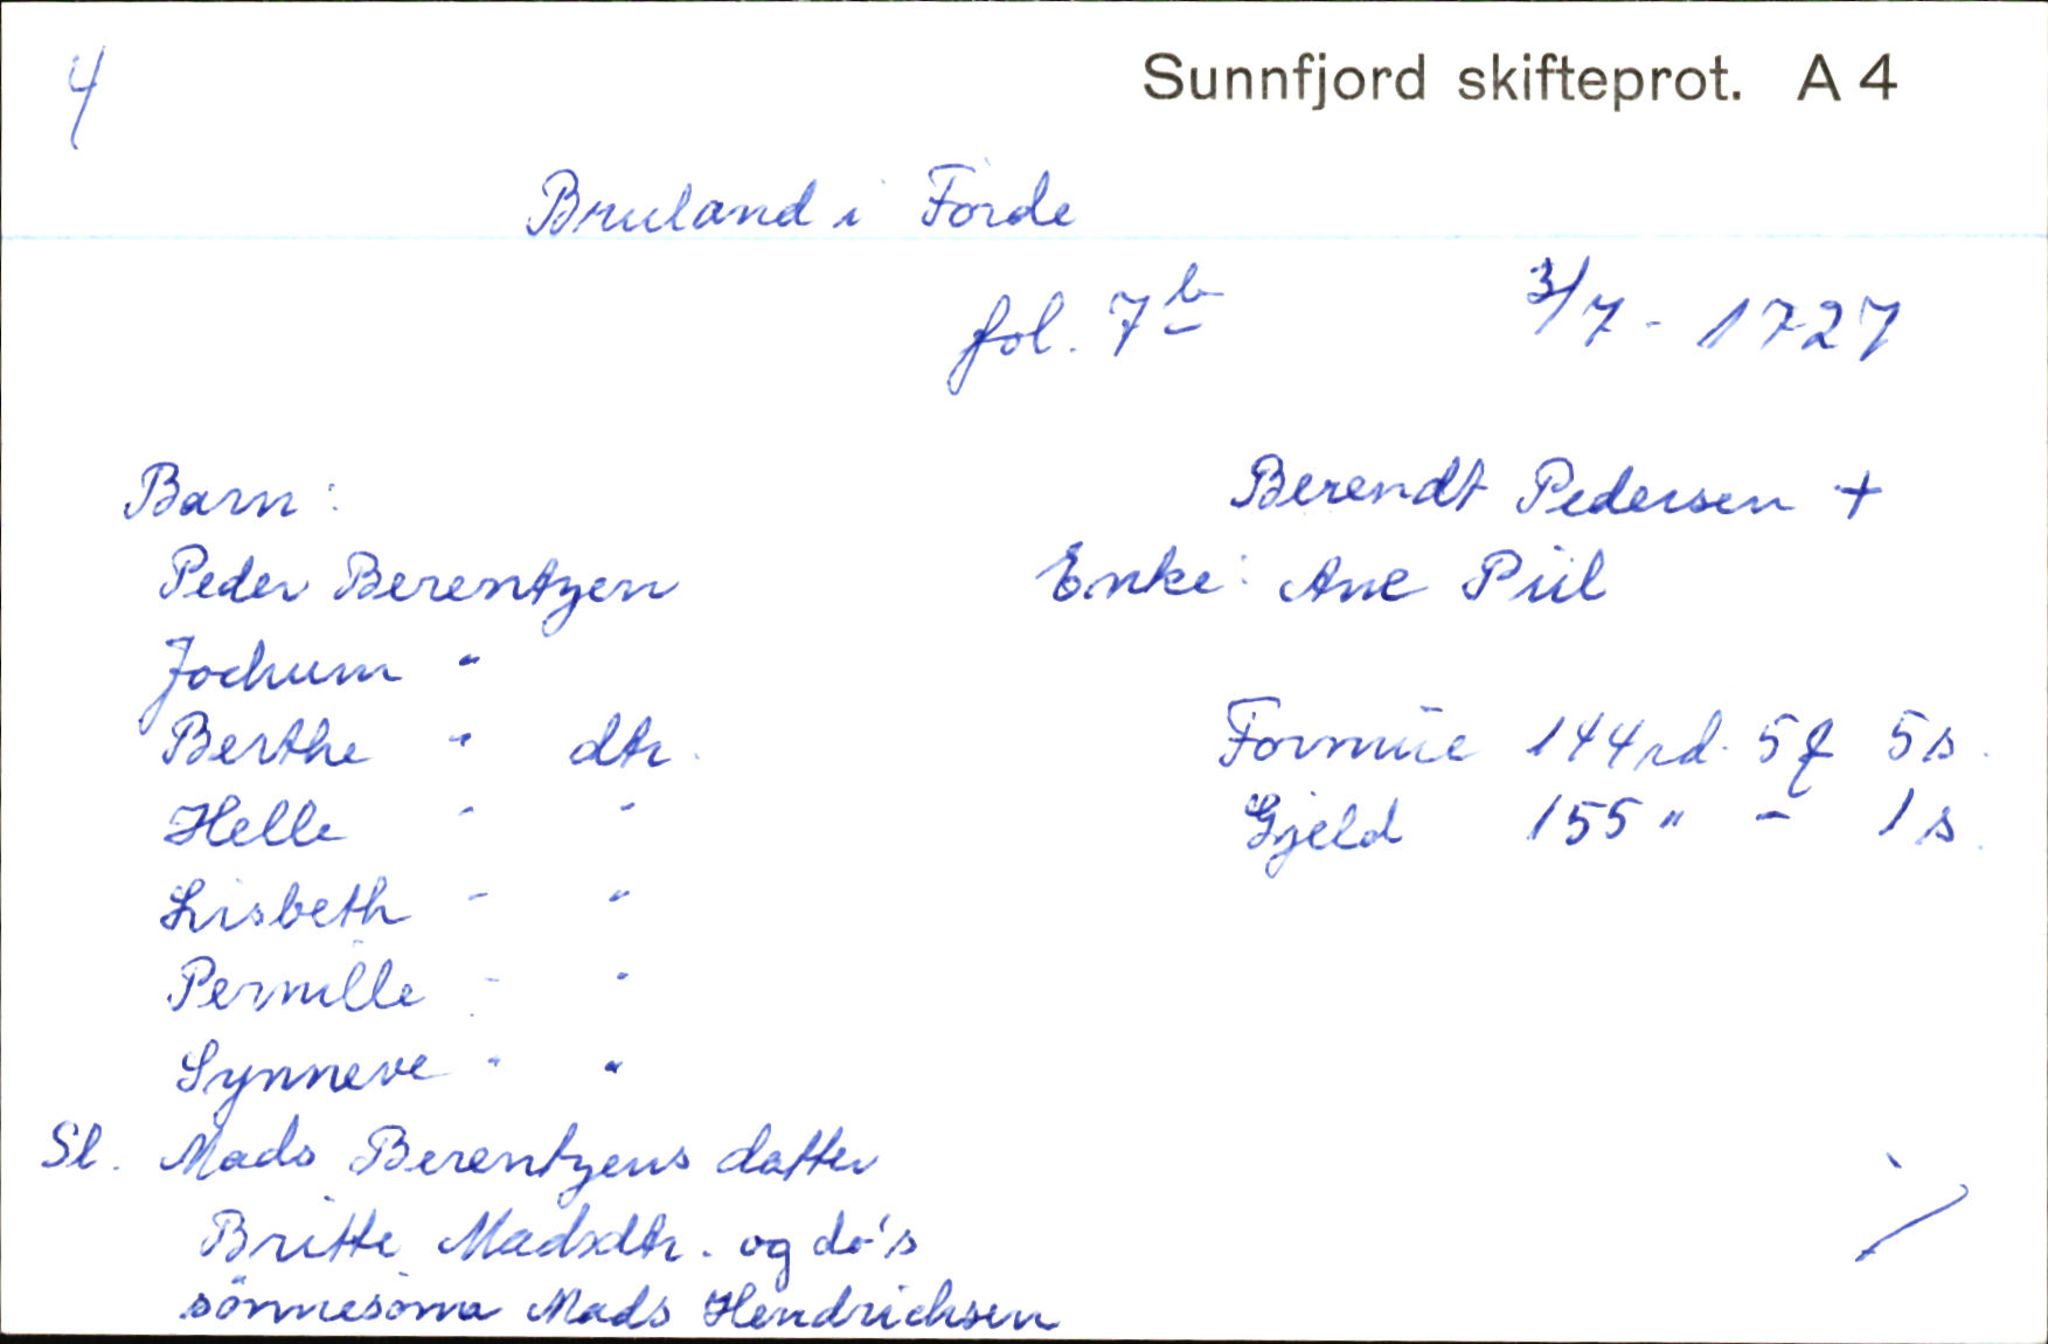 4
Sunnfjord skifteprot. A 4
Bruland i Förde
fol. 7 b
3/7 - 1727
Berendt Pedersen +
Enke: Ane Piil
Barn:
Peder Berentzen
Jochum "
Berthe " dtr.
Helle " "
Lisbeth " "
Pernille " "
Synneve " "
Sl. Mads Berentzens datter
Britte Madsdtr. og do's
sönnesönn Mads Hendrichsen
Formüe 144 rd. 5 5 s.
Gjeld 155 " - 1 s.